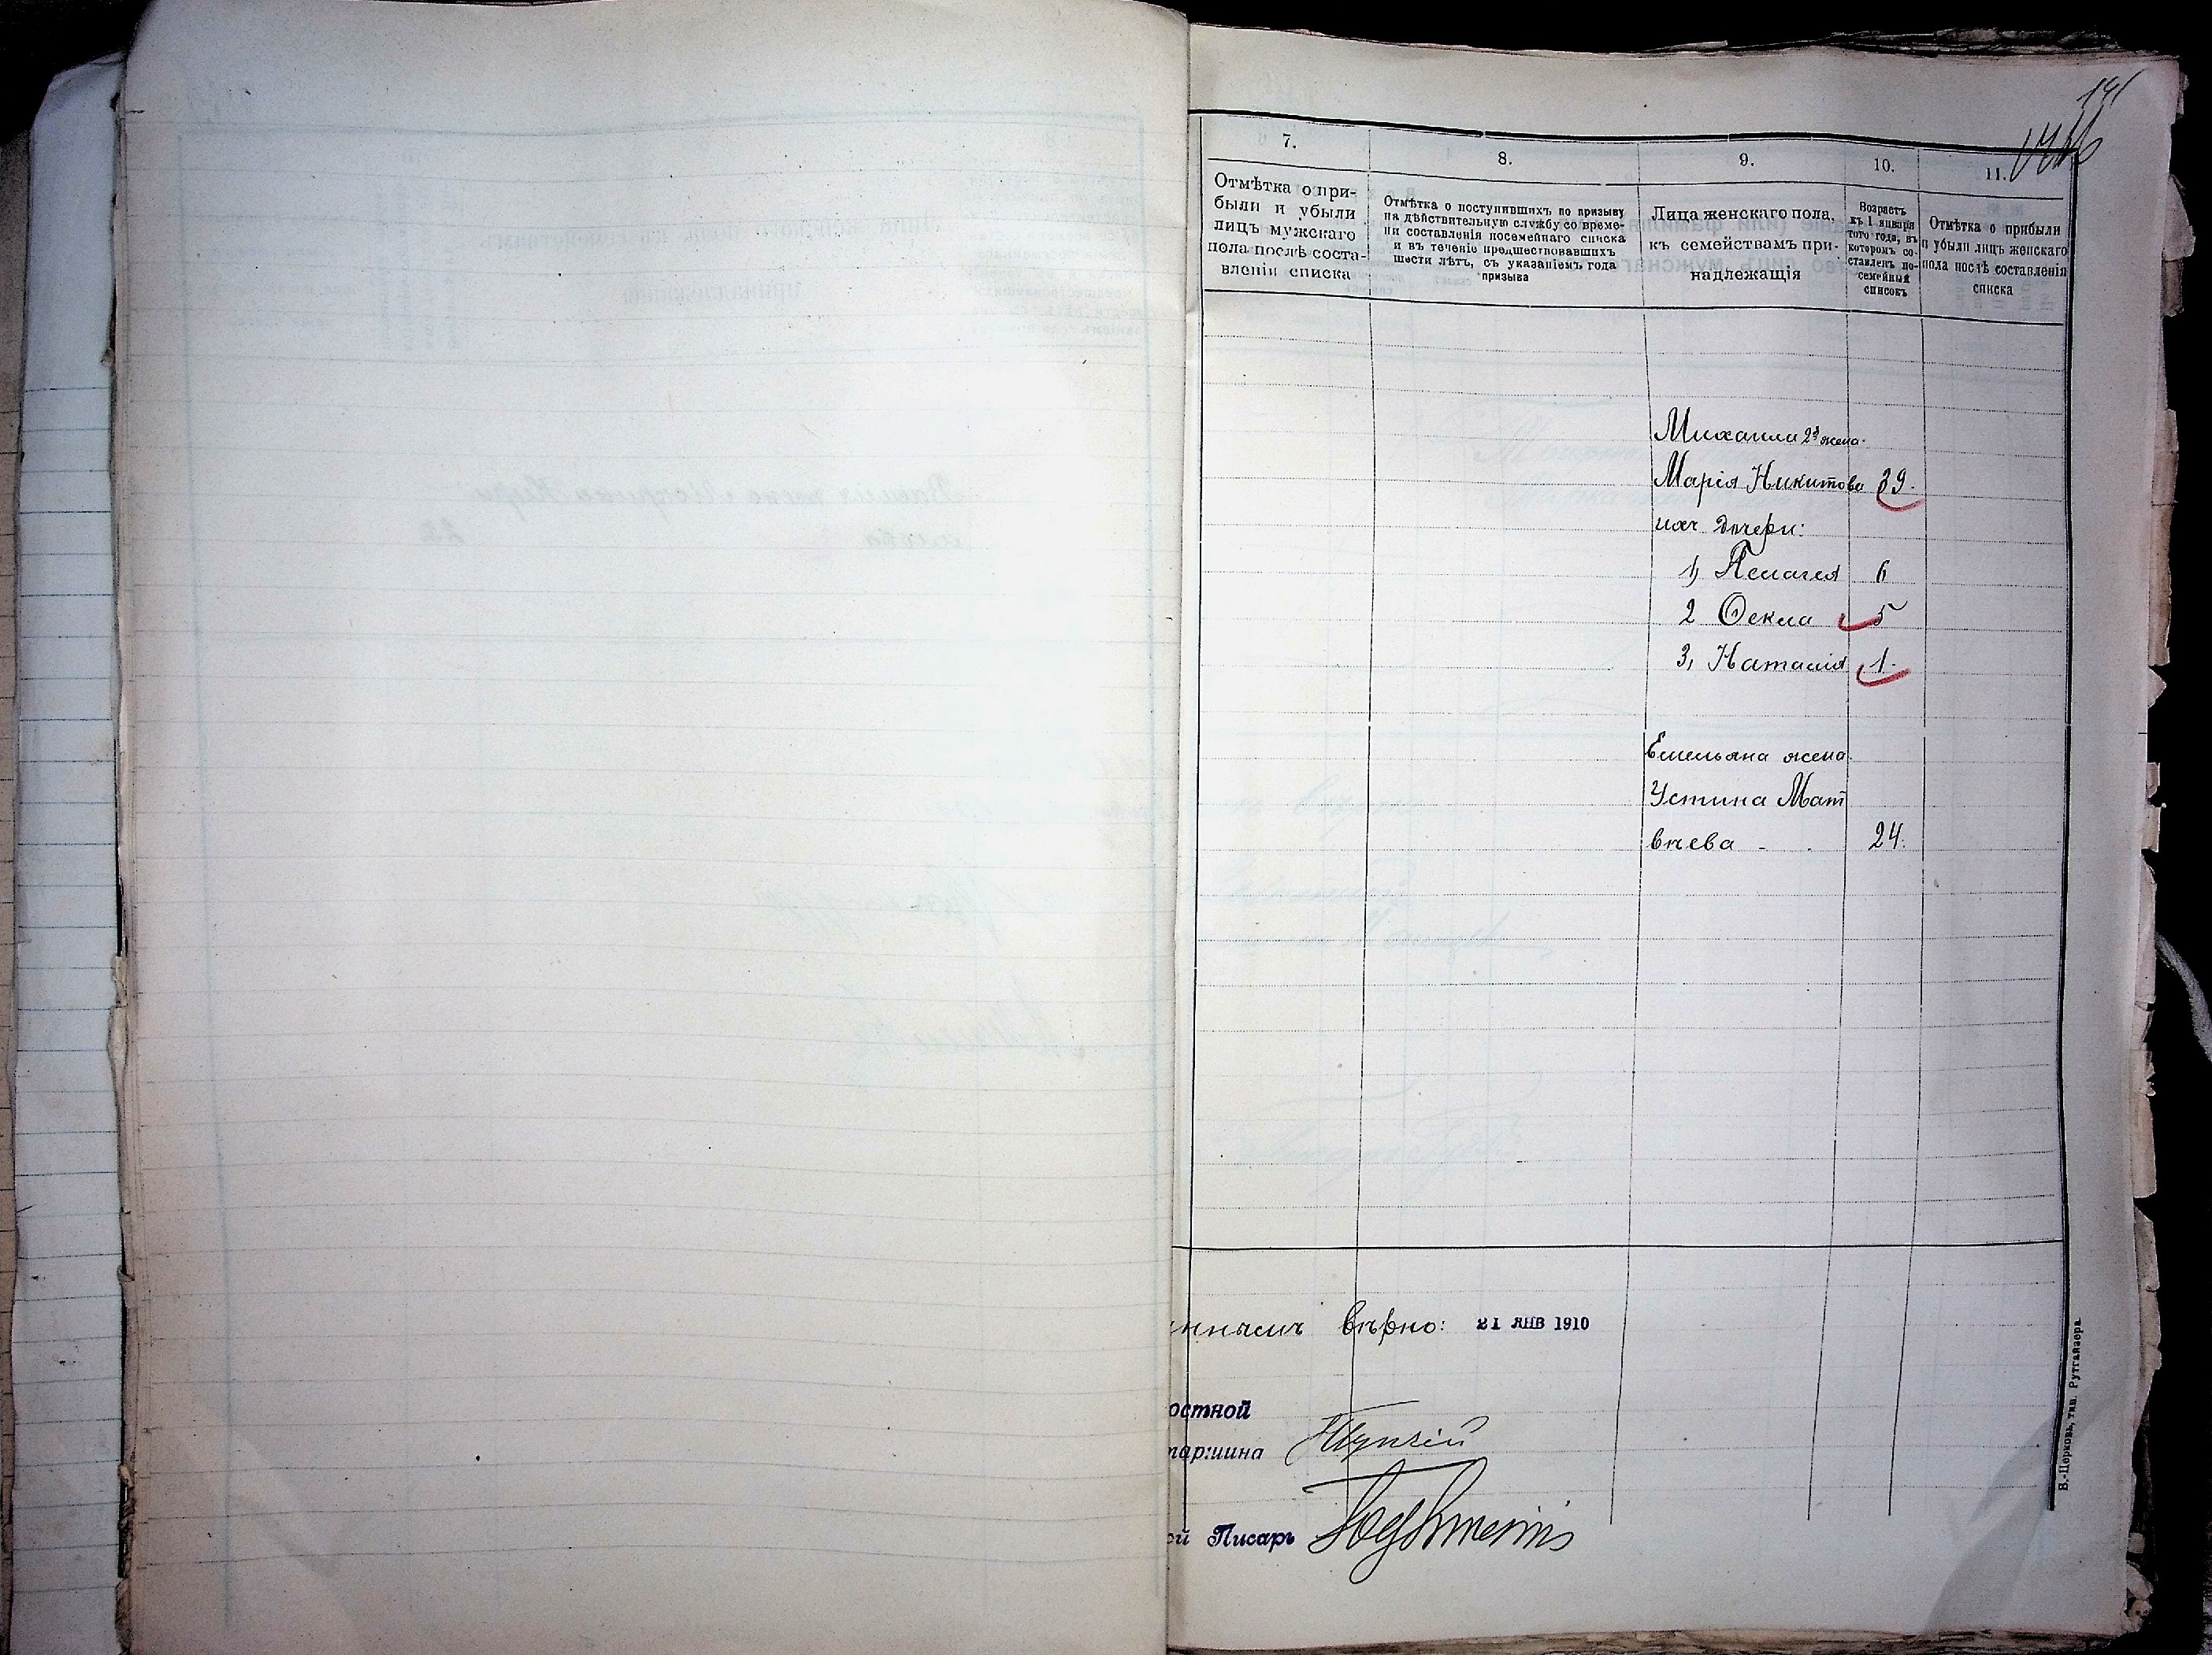 141
7.
8.
9.
10.
11.
Отмѣтка о при-
были и убыли
лицъ мужскаго
пола послѣ соста-
вленія списка
Отмѣтка о поступившихъ по призыву
на дѣйствительную службу со време-
ни составленія посемейнаго списка
и въ теченіе предшествовавшихъ
шести лѣтъ, съ указаніемъ года
призыва
Лица женскаго пола,
къ семействамъ при-
надлежащія
Возрастъ
къ 1 января
того года, въ
которомъ со-
ставленъ по-
семейный
списокъ
Отмѣтка о прибыли
и убыли лицъ женскаго
пола послѣ составленія
списка
Михаила 2я жена.
Марія Никитова 39.
ихъ дочери:
1, Пелагея 6
2 Ѳекла 5
3, Наталія 1.
Емельяна жена.
Устина Мат
вѣева - . 24.
ннымъ вѣрно: 21 ЯНВ 1910
остной
таршина
ой Писарь
Б.-Церковь, тип. Рутгайзера.